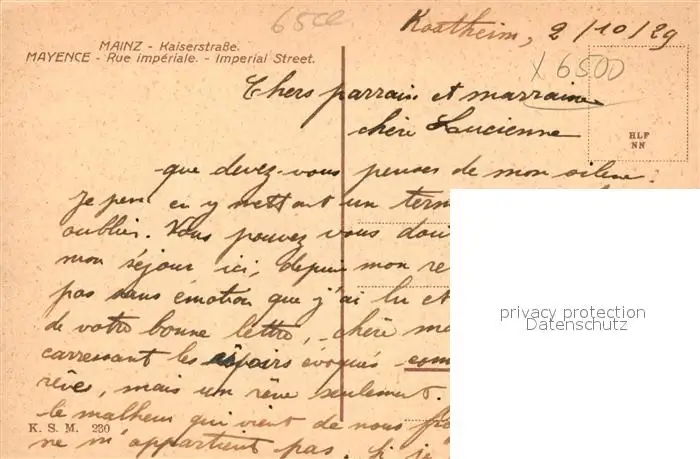 65ce
Kostheim, 2/10/29
MAINZ - Kaiserstraße.
MAYENCE - Rue impériale. - Imperial Street.
X 6500
Chers parrain et marraine
chère Lucienne
HLF
NN
-que devez-vous penser de mon silence.
Je pens en y mettant un term
oublier. Vous pouvez vous dou
mon séjour ici, depuis mon re
pas sans émotion que j'ai lu et
privacy protection
Datenschutz
de votre bonne lettre, chère ma
caressant les espoirs évoqués com
rêves, mais un rêve seulement.
le malheur qui vient de nous
K. S. M. 230
ne m'appartient pas, si je